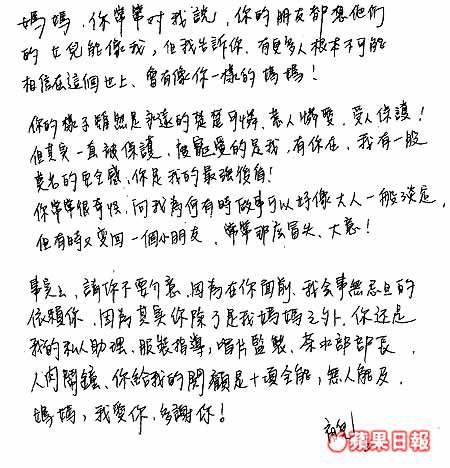 媽媽，你常常对我說，你的朋友都想他们
的女兒能像我，但我告訴你，有更多人根本不可能
相信在這個世上，會有像你一樣的媽媽！
你的樣子雖然是永遠的楚楚可憐、惹人憐愛、受人保護！
但其实一直被保護、被寵愛的是我，有你在，我有一股
莫名的安全感，你是我的最強後盾！
你常常很奇怪，问我為何有時做事可以好像大人一般淡定，
但有時又变回一個小朋友，常常那麽冒失、大意！
事实上，請你不要介意，因為在你面前，我会事無忌旦的
依賴你，因為其实你除了是我媽媽之外，你还是
我的私人助理、服裝指導，唱片監製、茶水部部長，
人肉鬧鐘，你給我的照顧是十項全能，無人能及，
媽媽，我愛你，多謝你！
蘋果日報